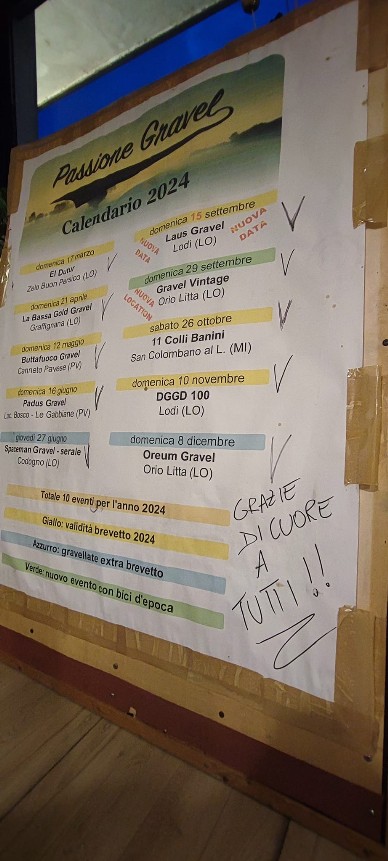 Passione Gravel
Calendario 2024
domenica 17 marzo
El Dutur
Zelo Buon Persico (LO)
domenica 21 aprile
La Bassa Gold Gravel
Graffignana (LO)
domenica 12 maggio
Buttafuoco Gravel
Canneto Pavese (PV)
domenica 16 giugno
Padus Gravel
Loc. Bosco - Le Gabbiane (PV)
giovedì 27 giugno
Spateman Gravel - serale
Codogno (LO)
domenica 15 settembre
Laus Gravel
Lodi (LO)
NUOVA
DATA
NUOVA
DATA
domenica 29 settembre
Gravel Vintage
Orio Litta (LO)
NUOVA
LOCATION
sabato 26 ottobre
11 Colli Banini
San Colombano al L. (MI)
domenica 10 novembre
DGGD 100
Lodi (LO)
domenica 8 dicembre
Oreum Gravel
Orio Litta (LO)
Totale 10 eventi per l'anno 2024
Giallo: validità brevetto 2024
Azzurro: gravellate extra brevetto
Verde: nuovo evento con bici d'epoca
GRAZIE
DI CUORE
A
TUTTI!!